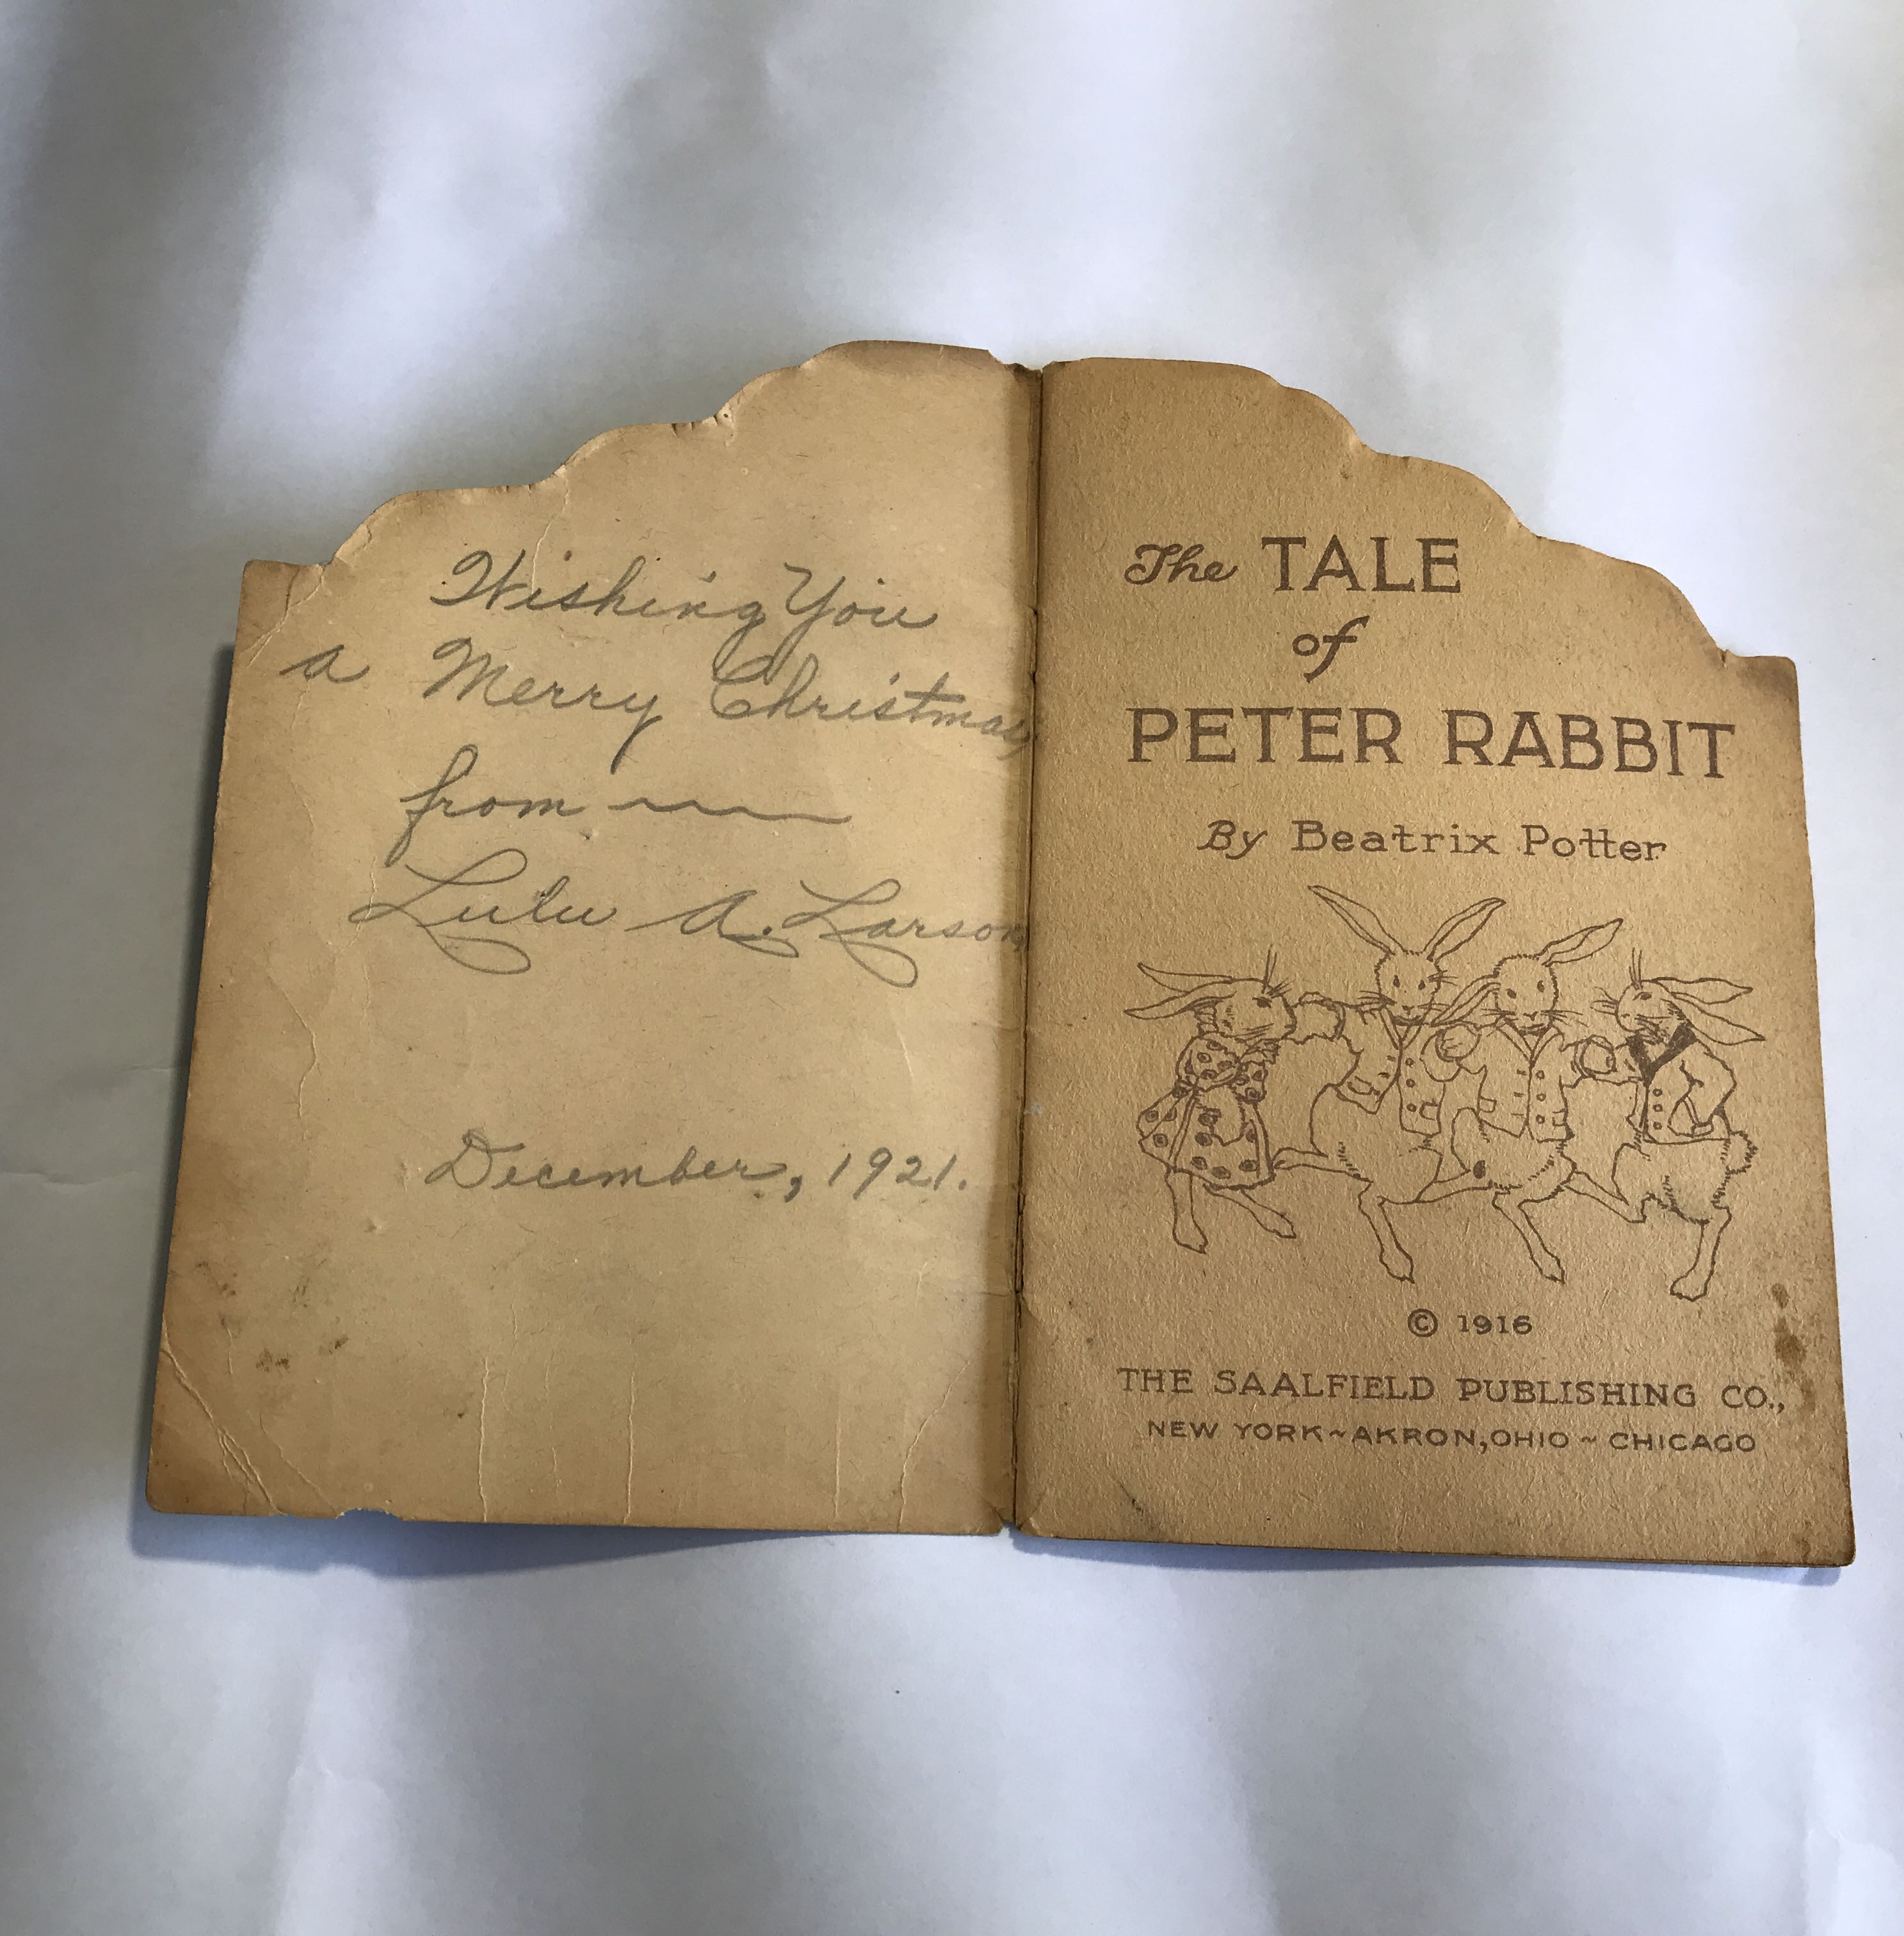 Wishing You
a Merry Christmas
from
Lulu A. Larson
December, 1921.
The TALE
of
PETER RABBIT
By Beatrix Potter
© 1916
THE SAALFIELD PUBLISHING CO.,
NEW YORK~AKRON,OHIO~CHICAGO